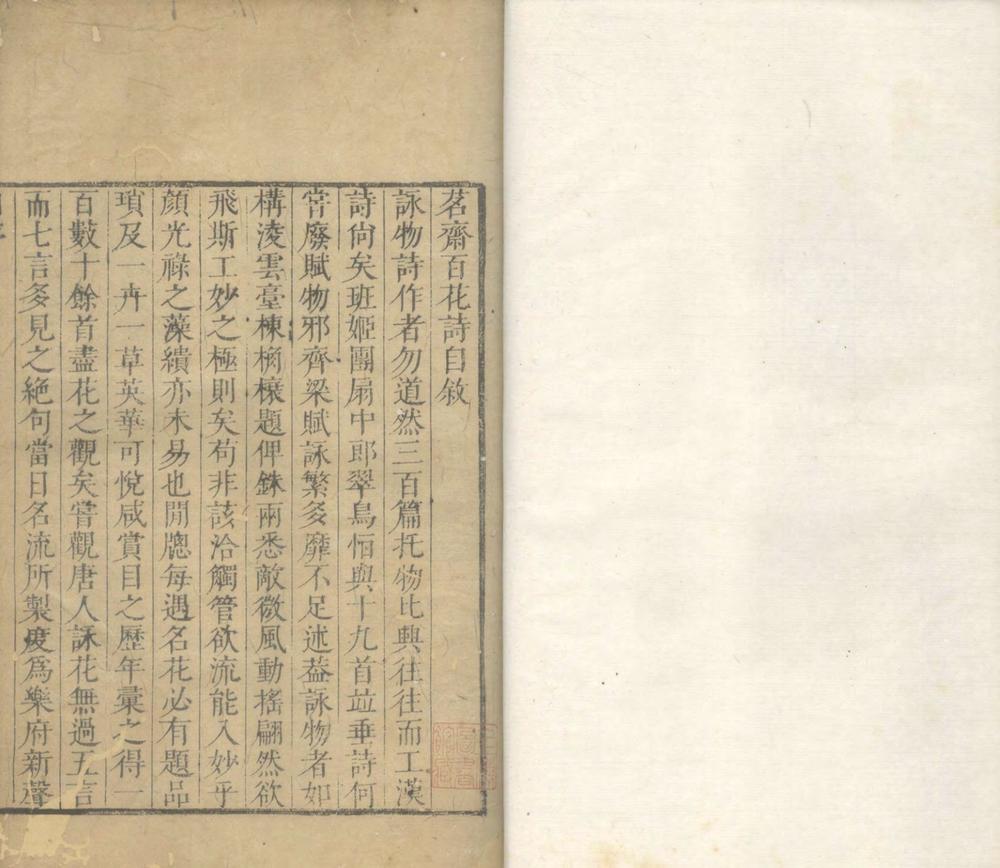 茗齋百花詩自敘
詠物詩作者勿道然三百篇托物比興往往而工漢
詩尙矣班姬團扇中郎翠鳥恒與十九首竝垂詩何
嘗廢賦物邪齊梁賦詠繁多靡不足述葢詠物者如
構淩雲臺棟桷榱題俾銖兩悉敵微風動搖翩然欲
飛斯工妙之極則矣苟非該洽觸管欲流能入妙乎
顏光祿之藻繢亦未易也閒牕每遇名花必有題品
瑣及一卉一草英華可悅咸賞目之歷年彙之得一
百數十餘首盡花之觀矣嘗觀唐人詠花無過五言
而七言多見之絕句當日名流所製度爲樂府新聲